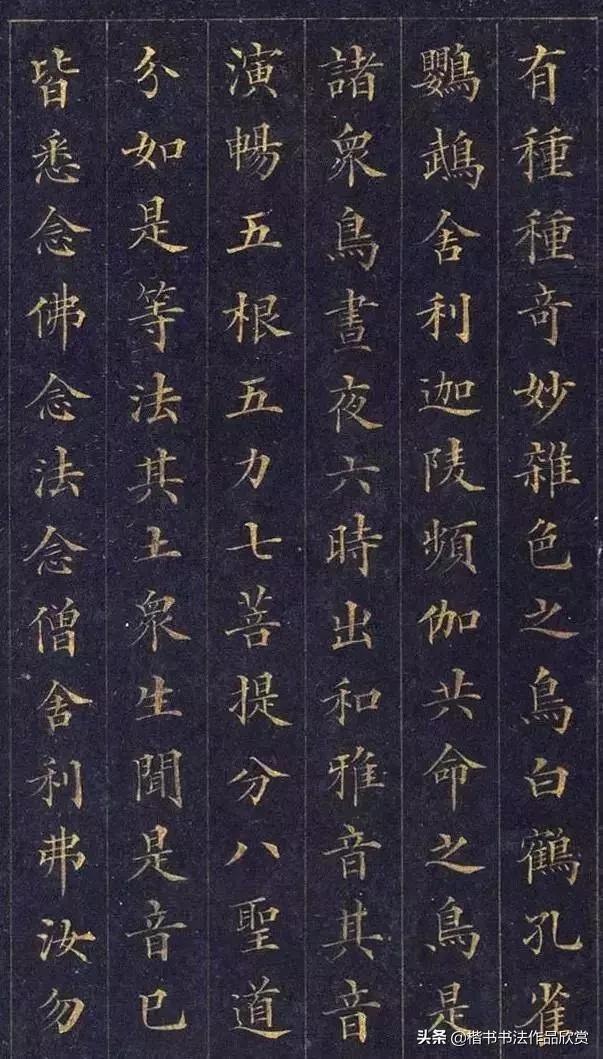 有種種奇妙雜色之鳥白鶴孔雀
鸚鵡舍利迦陵頻伽共命之鳥是
諸眾鳥晝夜六時出和雅音其音
演暢五根五力七菩提分八聖道
分如是等法其土眾生聞是音已
皆悉念佛念法念僧舍利弗汝勿
头条 @楷书书法作品欣赏